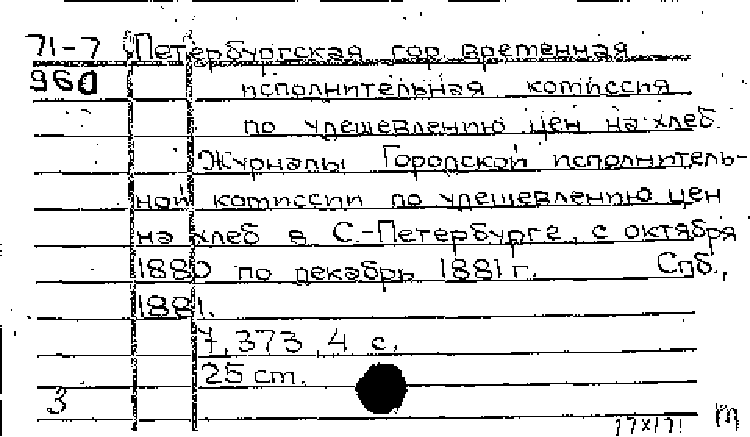 71-7 Петербургская гор. временная
960 исполнительная комиссия
по удешевлению цен на хлеб.
Журналы Городской исполнитель-
ной комиссии по удешевлению цен
на хлеб в С.-Петербурге, с октября
1880 по декабрь 1881 г. Спб.,
1881.
7, 373, 4 с.
25 см.
3